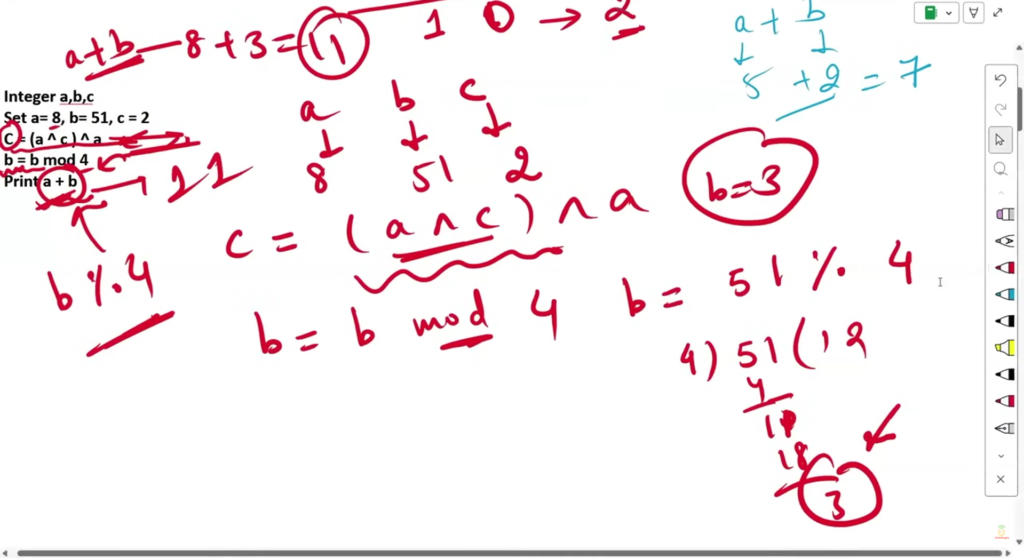 a+b — 8 + 3 = 11
1 → 2
a + b
↓ ↓
5 + 2 = 7
Integer a,b,c
Set a= 8, b= 51, c = 2
C = (a ^ c) ^ a
b = b mod 4
Print a + b → 11
b % 4
a b c
↓ ↓ ↓
8 51 2
c = (a ^ c) ^ a
b = b mod 4
b=3
b = 51 % 4
4) 51 ( 12
4
3